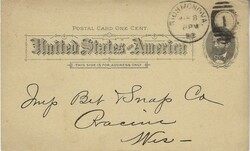 POSTAL CARD ONE CENT.
United States of America
THIS SIDE IS FOR ADDRESS ONLY
RICHMOND, VA
8 PM
93
1
Imp Bit & Snap Co
Racine
Wis-